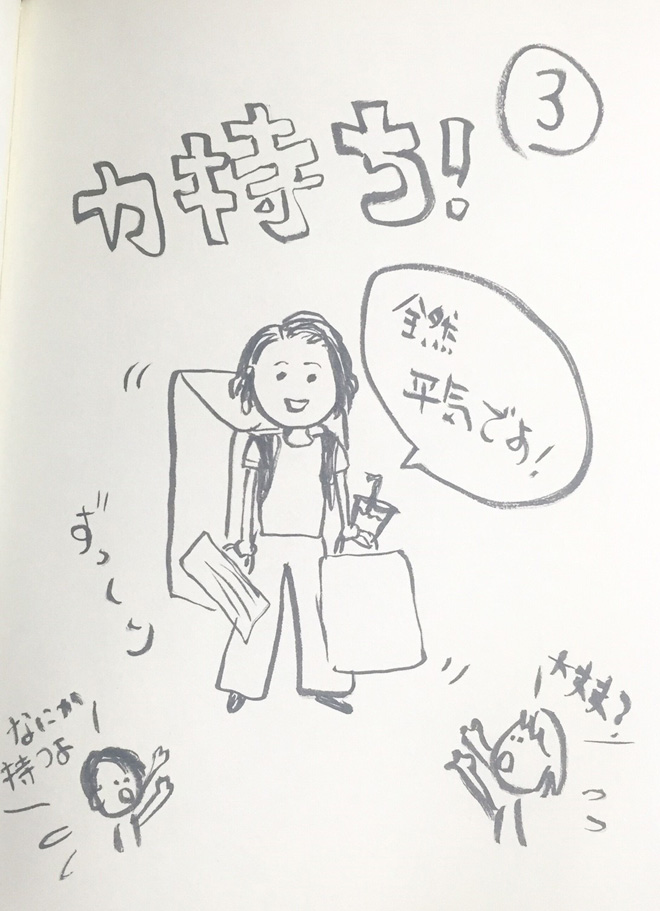 ③
力持ち!
全然
平気でよ!
ずっしり
なにか
持つよ
大丈夫?